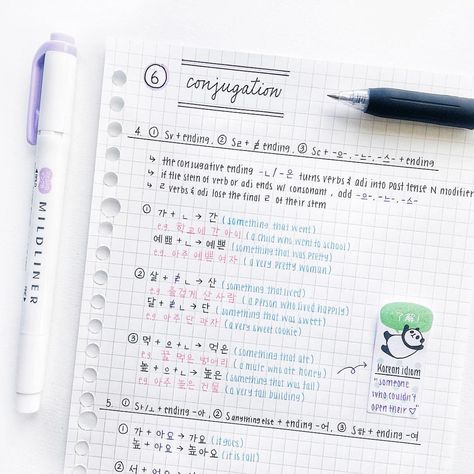 MILDLINER
6 conjugation
4. ① Sv + ending, ② Sㄹ + ㄹ ending, ③ Sc + -으-, -느-, -스- + ending
↳ the conjugative ending -ㄴ/-은 turns verbs & adj into past tense N modifier
↳ if the stem of verb or adj ends w/ consonant, add -으-, -느-, -스-
↳ ㄹ verbs & adj lose the final ㄹ of their stem
① 가 + ㄴ → 간 (something that went)
e.g. 학교에 간 아이 (a child who went to school)
예쁘 + ㄴ → 예쁜 (something that was pretty)
e.g. 아주 예쁜 여자 (a very pretty woman)
② 살 + ㄹ ㄴ → 산 (something that lived)
e.g. 즐겁게 산 사람 (a person who lived happily)
달 + ㄹ ㄴ → 단 (something that was sweet)
e.g. 아주 단 과자 (a very sweet cookie)
③ 먹 + 으 + ㄴ → 먹은 (something that ate)
e.g. 꿀 먹은 벙어리 (a mute who ate honey)
높 + 으 + ㄴ → 높은 (something that was tall)
e.g. 아주 높은 건물 (a very tall building)
了解!
Korean idiom
"someone
who couldn't
open their ♡"
5. ① Sㅏ/ㅗ + ending -아, ② Sanything else + ending -어, ③ S하 + ending -여
① 가 + 아요 → 가요 (it goes)
높 + 아요 → 높아요 (it is tall)